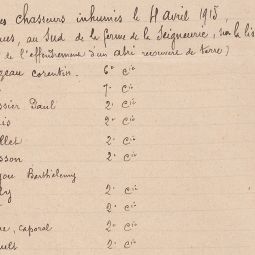 es chasseurs inhumés le 4 avril 1915,
ues, au Sud de la ferme de la Seigneurie, sur la lis
de l'effondrement d'un abri recouvert de terre)
geau Corentin. 6e Cie
7e Cie
ssier Paul 2e Cie
is 2e Cie
llet 2e Cie
sson 2e Cie
jou Barthélemy
ly 2e Cie
2e Cie
e, caporal 2e Cie
ult 2e Cie